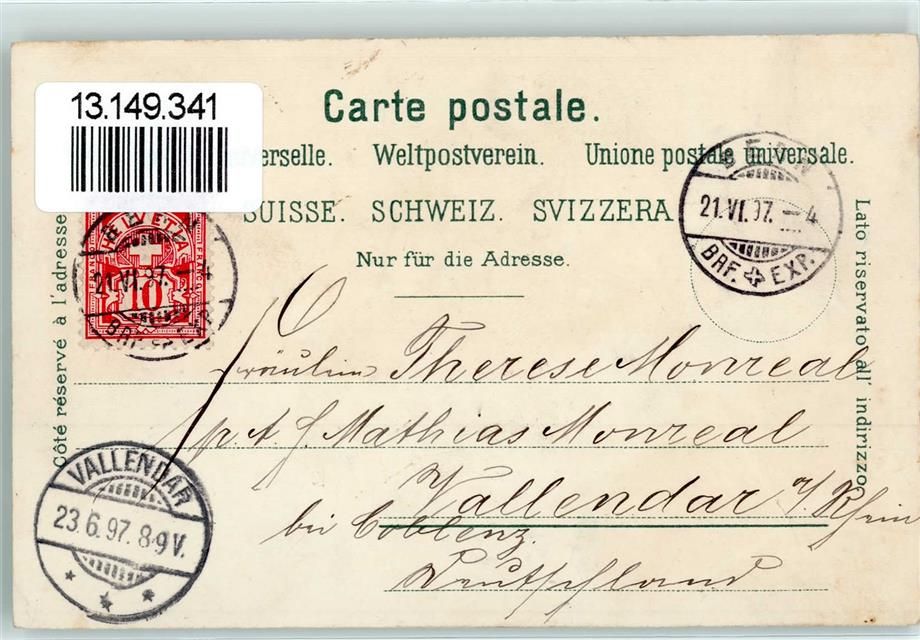 13.149.341
Carte postale.
erselle. Weltpostverein. Unione postale universale.
SUISSE. SCHWEIZ. SVIZZERA
Nur für die Adresse.
Côté réservé à l'adresse
Lato riservato all' indirizzo
HELVETIA
FRANCO
10
BERN
21.VI.97.–4
BRF. EXP.
BERN
21.VI.97.–4
BRF. EXP.
Fräulein Therese Monreal
Mathias Monreal
Vallendar a/ Rhein
bei Coblenz.
Deutschland
VALLENDAR
23.6.97.8-9V.